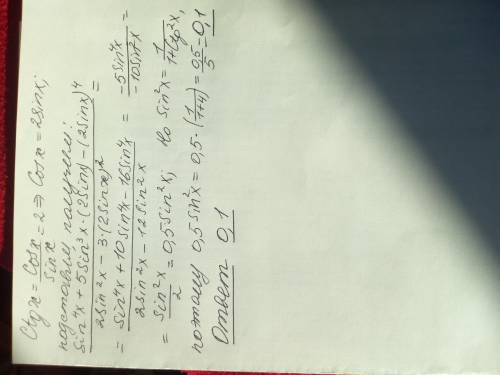 Ctg x = cosx/sinx = 2 ⇒ cosx = 2sinx;
подставим, получим:
(sin⁴x + 5sin³x·(2sinx) − (2sinx)⁴)/(2sin²x − 3·(2sinx)²) =
= (sin⁴x + 10sin⁴x − 16sin⁴x)/(2sin²x − 12sin²x) = (−5sin⁴x)/(−10sin²x) =
= sin²x/2 = 0,5sin²x; Но sin²x = 1/(1+ctg²x),
поэтому 0,5sin²x = 0,5·(1/(1+4)) = 0,5/5 = 0,1
Ответ 0,1